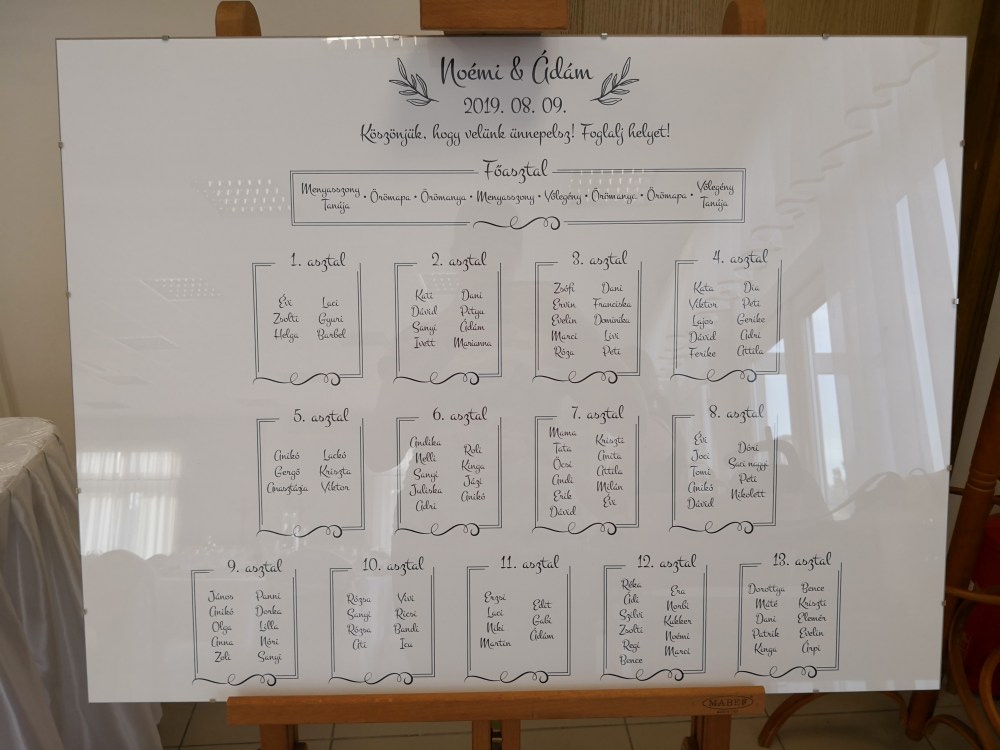 Noémi & Ádám
2019. 08. 09.
Köszönjük, hogy velünk ünnepelsz! Foglalj helyet!
Főasztal
Menyasszony Tanúja • Örömapa • Örömanya • Menyasszony • Vőlegény • Örömanya • Örömapa • Vőlegény Tanúja
1. asztal
Évi Laci
Zsolti Gyuri
Helga Barbel
2. asztal
Kati Dani
Dávid Pitya
Sanyi Ádám
Ivett Marianna
3. asztal
Zsófi Dani
Ervin Franciska
Evelin Dominika
Marci Livi
Róza Peti
4. asztal
Kata Dia
Viktor Peti
Lajos Gerike
Dávid Adri
Ferike Attila
5. asztal
Anikó Lackó
Gergő Kriszta
Anasztázia Viktor
6. asztal
Andika Roli
Nelli Kinga
Sanyi Jázi
Juliska Anikó
Adri
7. asztal
Mama Kriszti
Tata Anita
Öcsi Attila
Andi Milán
Erik Évi
Dávid
8. asztal
Évi Dóri
Joci Saci nagyi
Tomi Peti
Anikó Nikolett
Dávid
9. asztal
János Panni
Anikó Dorka
Olga Lilla
Anna Nóri
Zoli Sanyi
10. asztal
Rózsa Vivi
Sanyi Ricsi
Rózsa Bandi
Ati Icu
11. asztal
Erzsi Edit
Laci Gabi
Niki Ádám
Martin
12. asztal
Réka Era
Adi Norbi
Szilvi Kakker
Zsolti Noémi
Regi Marci
Bence
13. asztal
Dorottya Bence
Máté Kriszti
Dani Elemér
Patrik Evelin
Kinga Árpi
MABEF